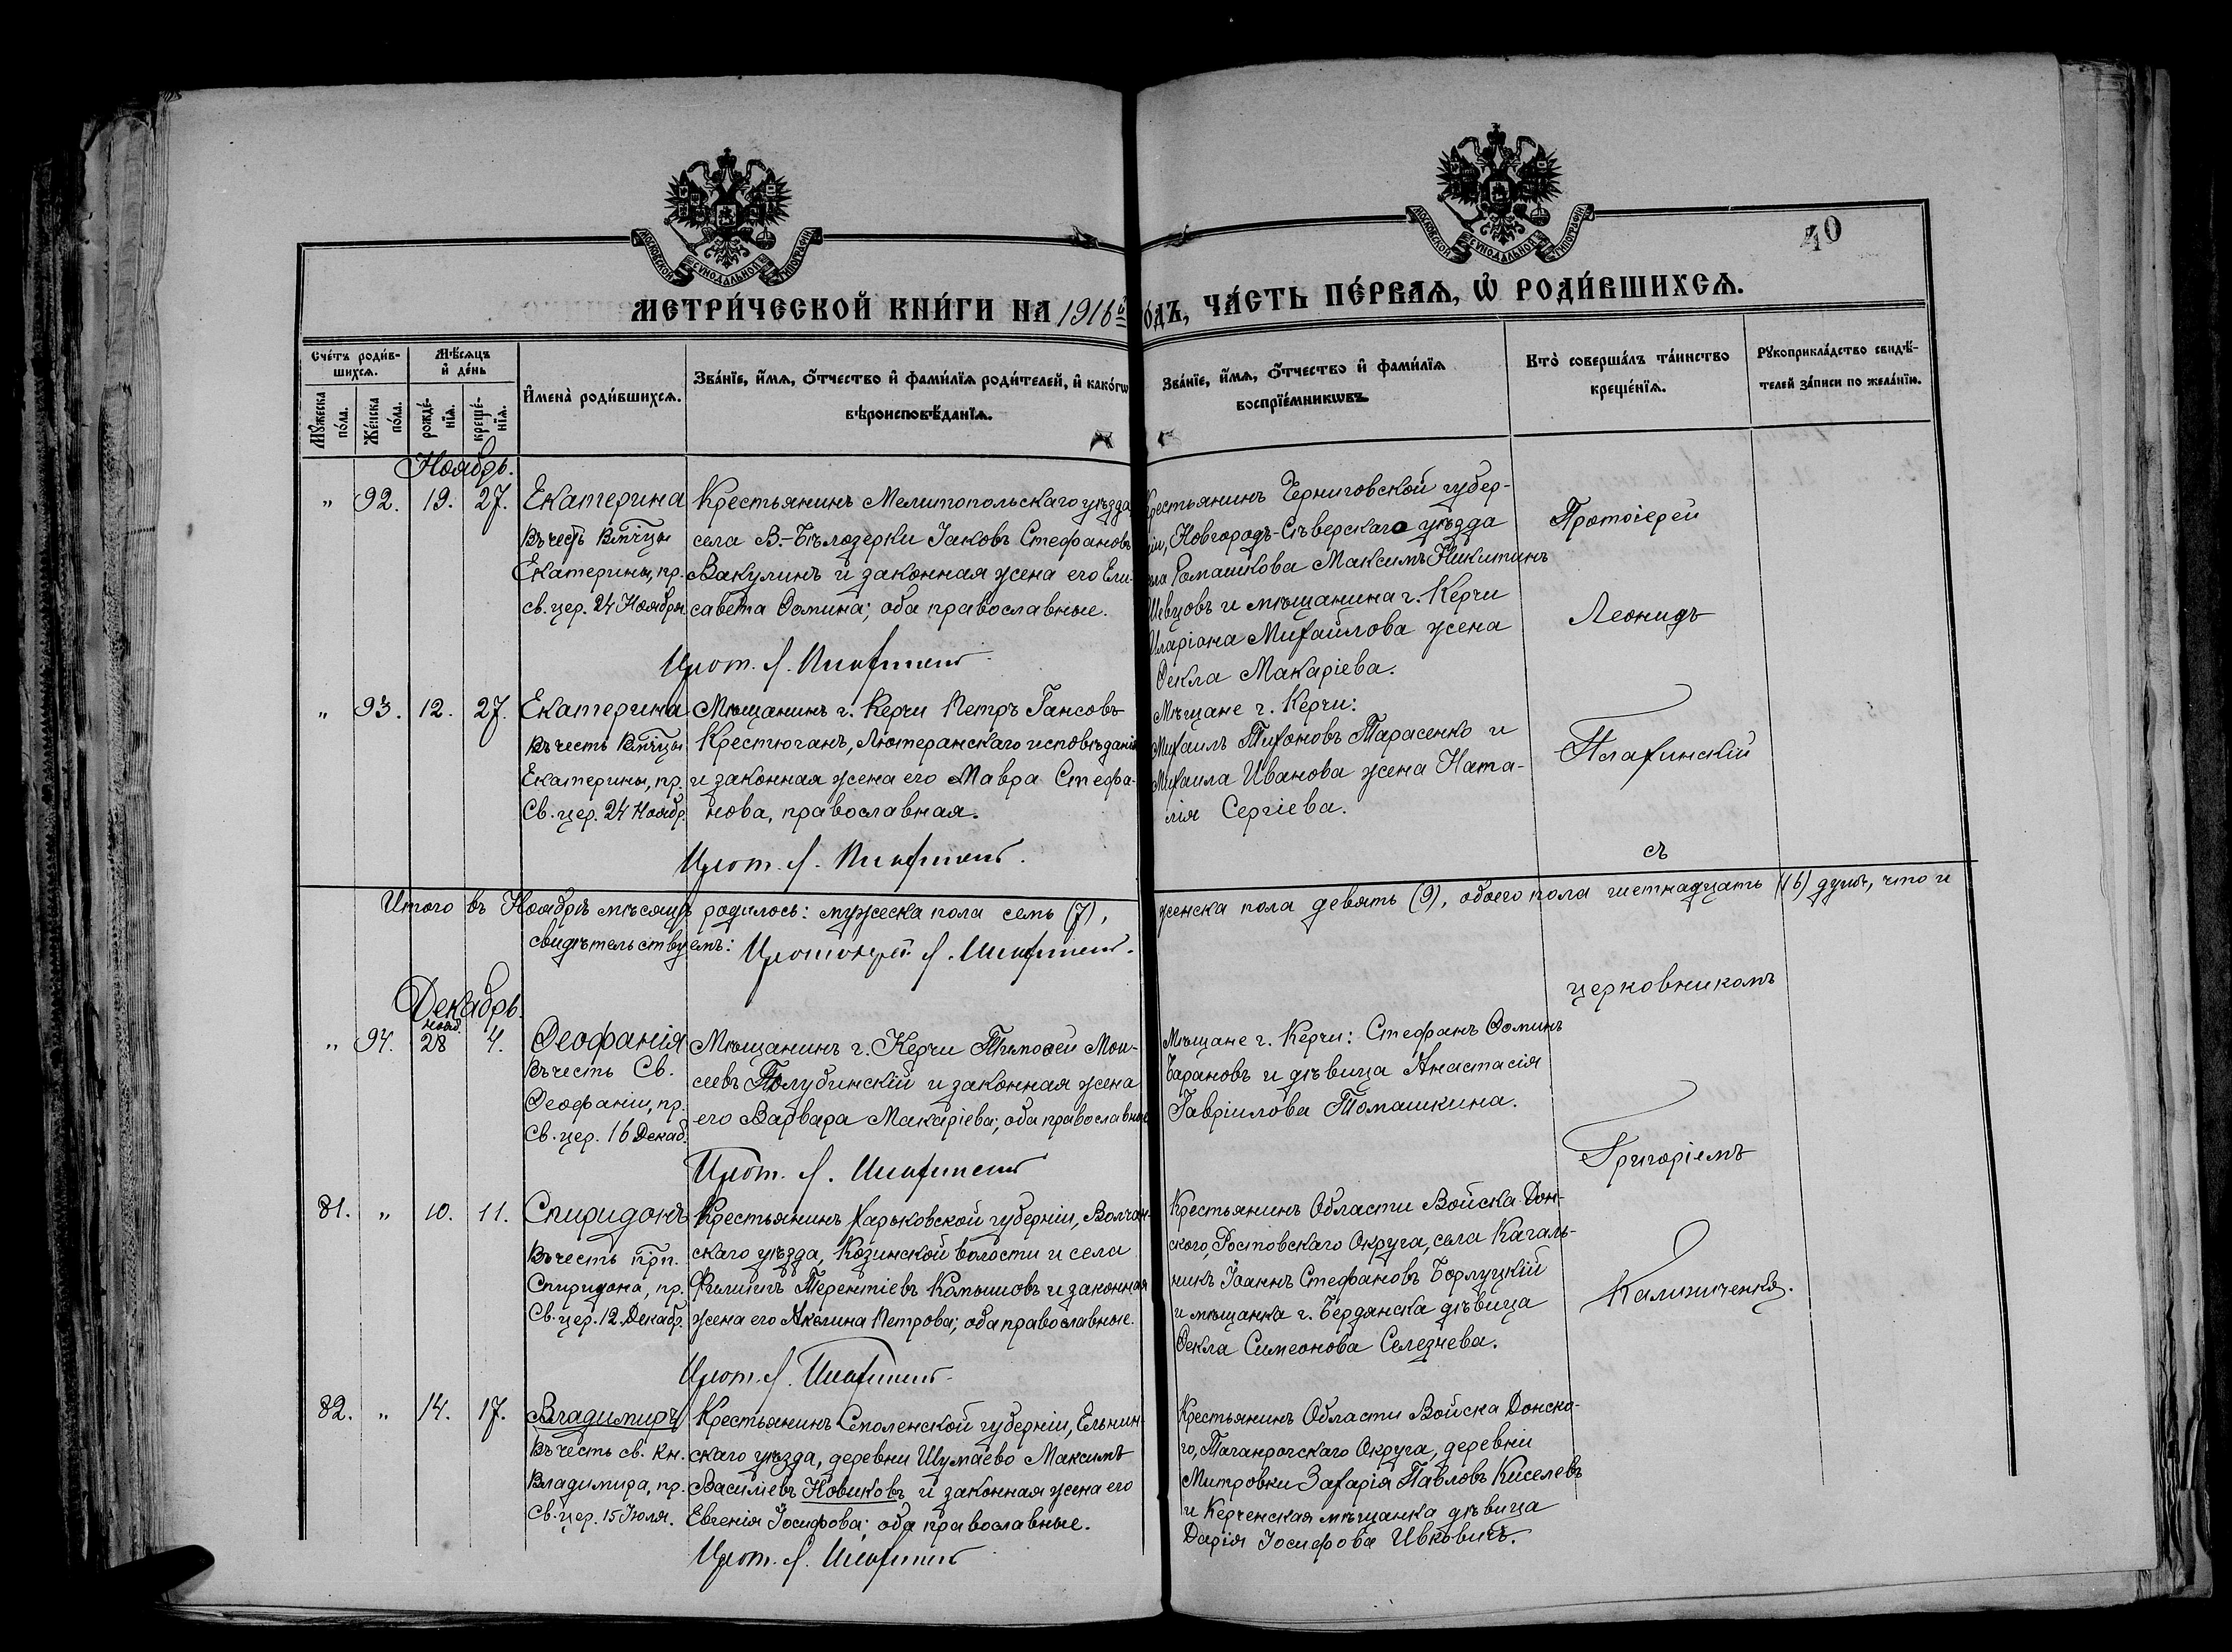 МОСКОВСКОЙ СѴНОДАЛЬНОЙ ТИПОГРАФІИ
МОСКОВСКОЙ СѴНОДАЛЬНОЙ ТИПОГРАФІИ
40
МЕТРИ́ЧЕСКОЙ КНИ́ГИ НА 1916й
ОДЪ, ЧА́СТЬ ПЕ́РВАѦ, Ѡ҆ РОДИ́ВШИХСѦ.
Сче́тъ роди́в-
шихсѧ.
Мѣ́сѧцъ
и҆ де́нь
Мꙋ́жеска
по́ла.
Же́нска
по́ла.
рожде́-
нїѧ.
креще́-
нїѧ.
И҆мена̀ роди́вшихсѧ.
Зва́нїе, и҆́мѧ, ѻ҆́тчество и҆ фами́лїѧ роди́телей, и҆ како́гѡ
вѣроисповѣ́данїѧ.
Зва́нїе, и҆́мѧ, ѻ҆́тчество и҆ фами́лїѧ
воспрїе́мникѡвъ.
Кто̀ соверша́лъ та́инство
креще́нїѧ.
Рꙋкоприкла́дство свидѣ́-
телей за́писи по жела́нїю.
Ноябрь.
" 92. 19. 27. Екатерина
Въ честь Вмчцы
Екатерины, пр.
св. цер. 24 Ноября
Крестьянинъ Мелитопольскаго уѣзда
села В.-Бѣлозерки Іаковъ Стефановъ
Вакулинъ и законная жена его Ели-
савета Ѳомина; оба православные.
Прот. Л.
Крестьянинъ Черниговской губер-
ніи, Новгородъ-Сѣверскаго уѣзда
села Ромашкова Максимъ Никитинъ
Шевцовъ и мѣщанина г. Керчи
Иларіона Михайлова жена
Ѳекла Макаріева.
" 93. 12. 27. Екатерина
Въ честь Вмчцы
Екатерины, пр.
Св. цер. 24 Ноябр.
Мѣщанинъ г. Керчи Петръ Гансовъ
Крестюганъ, Лютеранскаго исповѣданія
и законная жена его Мавра Стефа-
нова, православная.
Прот. Л.
Мѣщане г. Керчи:
Михаилъ Тихоновъ Тарасенко и
Михаила Иванова жена Ната-
лія Сергіева.
Итого въ Ноябрѣ мѣсяцѣ родилось: мужеска пола семь (7),
женска пола девять (9), обоего пола шестнадцать (16) душъ, что и
свидѣтельствуемъ: Протоіерей Л.
Декабрь.
" 94. нояб. 28 4. Ѳеофанія
Въ честь Св.
Ѳеофаніи, пр.
Св. цер. 16 Декаб.
Мѣщанинъ г. Керчи Тимоѳей Мои-
сеевъ Полубинскій и законная жена
его Варвара Макаріева; оба православные
Прот. Л.
Мѣщане г. Керчи: Стефанъ Ѳоминъ
Барановъ и дѣвица Анастасія
Гавріилова Томашкина.
81. " 10. 11. Спиридонъ
Въ честь прп.
Спиридона, пр.
Св. цер. 12 Декабр.
Крестьянинъ Харьковской губерніи, Волчан-
скаго уѣзда, Козинской волости и села
Филиппъ Терентіевъ Комышовъ и законная
жена его Акилина Петрова; оба православные.
Прот. Л.
Крестьянинъ Области Войска Дон-
ского, Ростовскаго Округа, села Кагаль-
никъ Іоаннъ Стефановъ Борлуцкій
и мѣщанка г. Бердянска дѣвица
Ѳекла Симеонова Селезнева.
82. " 14. 17. Владимиръ
Въ честь св. Кн.
Владимира, пр.
Св. цер. 15 Іюля.
Крестьянинъ Смоленской губерніи, Ельнин-
скаго уѣзда, деревни Шумаево Максимъ
Василіевъ Новиковъ и законная жена его
Евгенія Іосифова; оба православные.
Прот. Л.
Крестьянинъ Области Войска Донско-
го, Таганрогскаго Округа, деревни
Митровки Захарія Павловъ Киселевъ
и Керченская мѣщанка дѣвица
Дарія Іосифова Ивковичъ.
Протоіерей
Леонидъ
Плахинскій
съ
церковникомъ
Григоріемъ
Калиниченко.